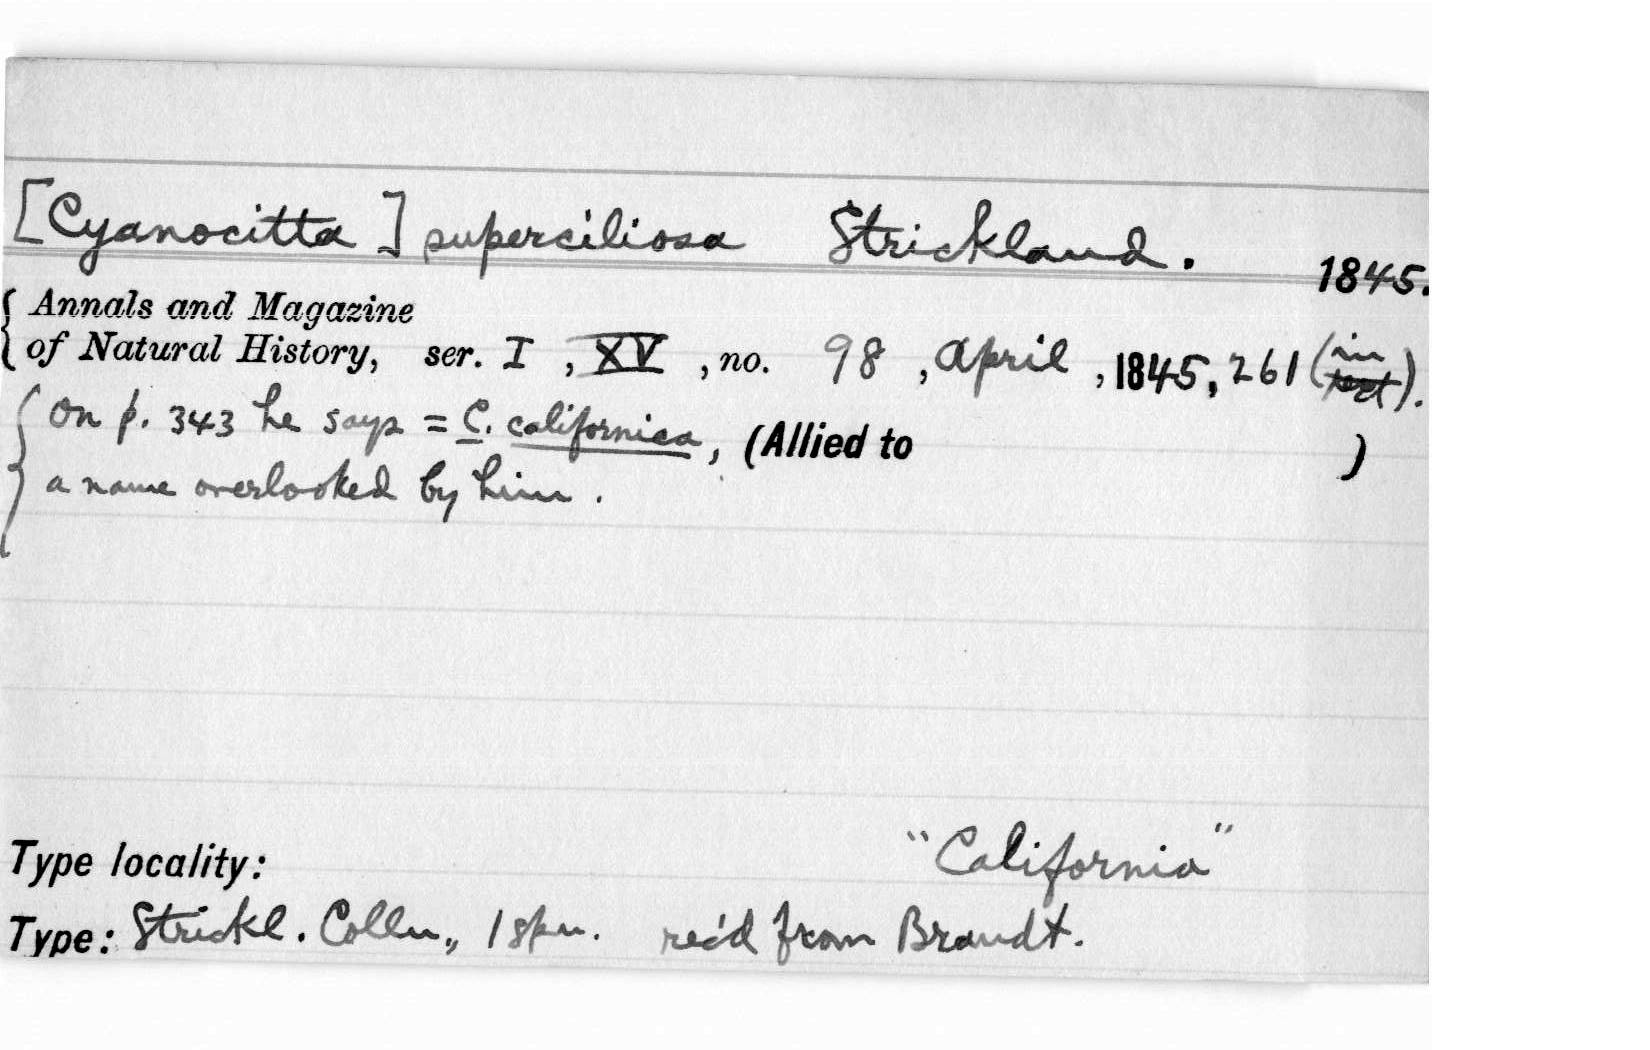 [Cyanocitta] superciliosa Strickland. 1845.
{ Annals and Magazine
of Natural History, ser. I, XV, no. 98, April, 1845, 261 (in text).
{ On p. 343 he says = C. californica, (Allied to )
a name overlooked by him.
Type locality: "California"
Type: Strickl. Colln., 1 spn. rec'd from Brandt.